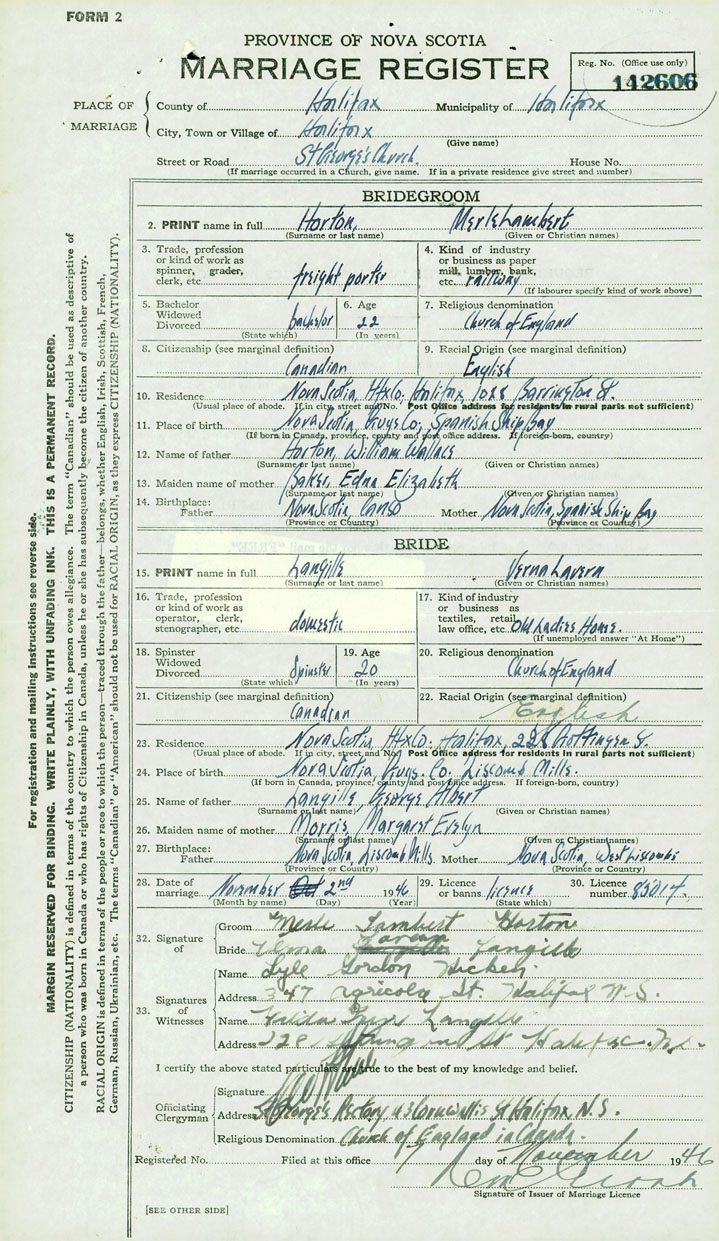 FORM 2
PROVINCE OF NOVA SCOTIA
MARRIAGE REGISTER
Reg. No. (Office use only)
142606
PLACE OF MARRIAGE
County of Halifax Municipality of Halifax
City, Town or Village of Halifax
(Give name)
Street or Road St George's Church. House No.
(If marriage occurred in a Church, give name. If in a private residence give street and number)
BRIDEGROOM
2. PRINT name in full Horton, Merle Lambert
(Surname or last name) (Given or Christian names)
3. Trade, profession or kind of work as spinner, grader, clerk, etc. freight porter
4. Kind of industry or business as paper mill, lumber, bank, etc. railway
(If labourer specify kind of work above)
5. Bachelor Widowed Divorced bachelor
(State which)
6. Age 22
(In years)
7. Religious denomination
Church of England
8. Citizenship (see marginal definition)
Canadian
9. Racial Origin (see marginal definition)
English
10. Residence Nova Scotia, Hfx Co. Halifax, 1088 Barrington St.
(Usual place of abode. If in city, street and No. Post Office address for residents in rural parts not sufficient)
11. Place of birth Nova Scotia, Guys Co, Spanish Ship Bay
(If born in Canada, province, county and post office address. If foreign-born, country)
12. Name of father Horton, William Wallace
(Surname or last name) (Given or Christian names)
13. Maiden name of mother Baker, Edna Elizabeth
(Surname or last name) (Given or Christian names)
14. Birthplace: Father Nova Scotia, Canso Mother Nova Scotia, Spanish Ship Bay
(Province or Country) (Province or Country)
BRIDE
15. PRINT name in full Langille Verna Lavern
(Surname or last name) (Given or Christian names)
16. Trade, profession or kind of work as operator, clerk, stenographer, etc. domestic
17. Kind of industry or business as textiles, retail, law office, etc. Old Ladies Home.
(If unemployed answer "At Home")
18. Spinster Widowed Divorced Spinster
(State which)
19. Age 20
(In years)
20. Religious denomination
Church of England
21. Citizenship (see marginal definition)
Canadian
22. Racial Origin (see marginal definition)
English
23. Residence Nova Scotia, Hfx Co. Halifax, 228 Gottingen St.
(Usual place of abode. If in city, street and No. Post Office address for residents in rural parts not sufficient)
24. Place of birth Nova Scotia, Guys. Co. Liscomb Mills.
(If born in Canada, province, county and post office address. If foreign-born, country)
25. Name of father Langille, George Albert
(Surname or last name) (Given or Christian names)
26. Maiden name of mother Morris, Margaret Evelyn
(Surname or last name) (Given or Christian names)
27. Birthplace: Father Nova Scotia, Liscomb Mills Mother Nova Scotia, West Liscombe
(Province or Country) (Province or Country)
28. Date of marriage November 2nd 1946
(Month by name) (Day) (Year)
29. Licence or banns licence
(State which)
30. Licence number 85017.
32. Signature of
Groom Merle Lambert Horton
Bride Langille
33. Signatures of Witnesses
Name Lyle Gordon
Address 347 Agricola St. Halifax N.S.
Name Langille
Address 228 St Halifax N.S.
I certify the above stated particulars are true to the best of my knowledge and belief.
Officiating Clergyman
Signature
Address St George's Rectory, Cornwallis St Halifax N.S.
Religious Denomination Church of England in Canada.
Registered No. Filed at this office 7 day of November 1946
Signature of Issuer of Marriage Licence
[SEE OTHER SIDE]
For registration and mailing instructions see reverse side.
MARGIN RESERVED FOR BINDING. WRITE PLAINLY, WITH UNFADING INK. THIS IS A PERMANENT RECORD.
CITIZENSHIP (NATIONALITY) is defined in terms of the country to which the person owes allegiance. The term "Canadian" should be used as descriptive of
a person who was born in Canada or who has rights of Citizenship in Canada, unless he or she has subsequently become the citizen of another country.
RACIAL ORIGIN is defined in terms of the people or race to which the person—traced through the father—belongs, whether English, Irish, Scottish, French,
German, Russian, Ukrainian, etc. The terms "Canadian" or "American" should not be used for RACIAL ORIGIN, as they express CITIZENSHIP (NATIONALITY).